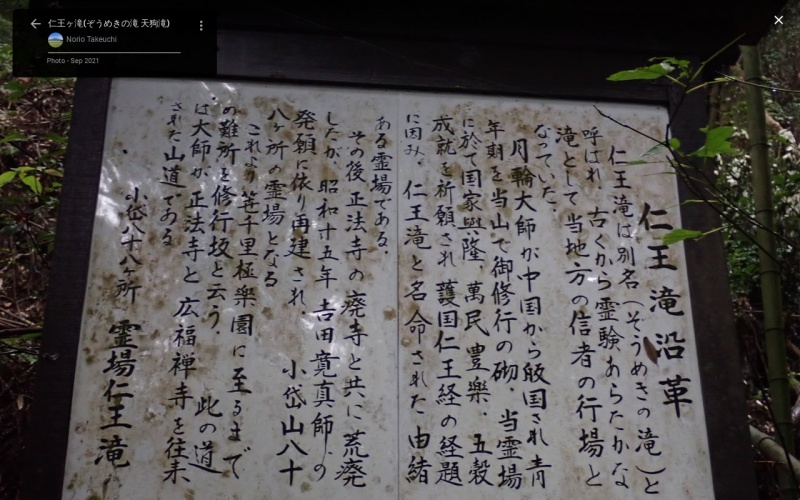 仁王ヶ滝(ぞうめきの滝 天狗滝)
Norio Takeuchi
Photo - Sep 2021
仁王滝沿革
仁王滝は別名(そうめきの滝)と
呼ばれ、古くから霊験あらたかな
滝として当地方の信者の行場と
なっていた。
月輪大師が中国から皈国され青
年剃を当山で御修行の砌、当霊場
に於て国家興隆、萬民豊樂、五穀
成就を祈願され護国仁王経の経題
に因み、仁王滝と名命された由緒
ある霊場である。
その後正法寺の廃寺と共に荒廃
したが昭和十五年吉田寛真師の
発願に依り再建され、小岱山八十
八ヶ所の霊場となる
これより笹千里極樂園に至るまで
の難所を修行坂と云う。此の道
は大師が正法寺と広福禅寺を往来
された山道である
小岱八十八ヶ所 霊場仁王滝